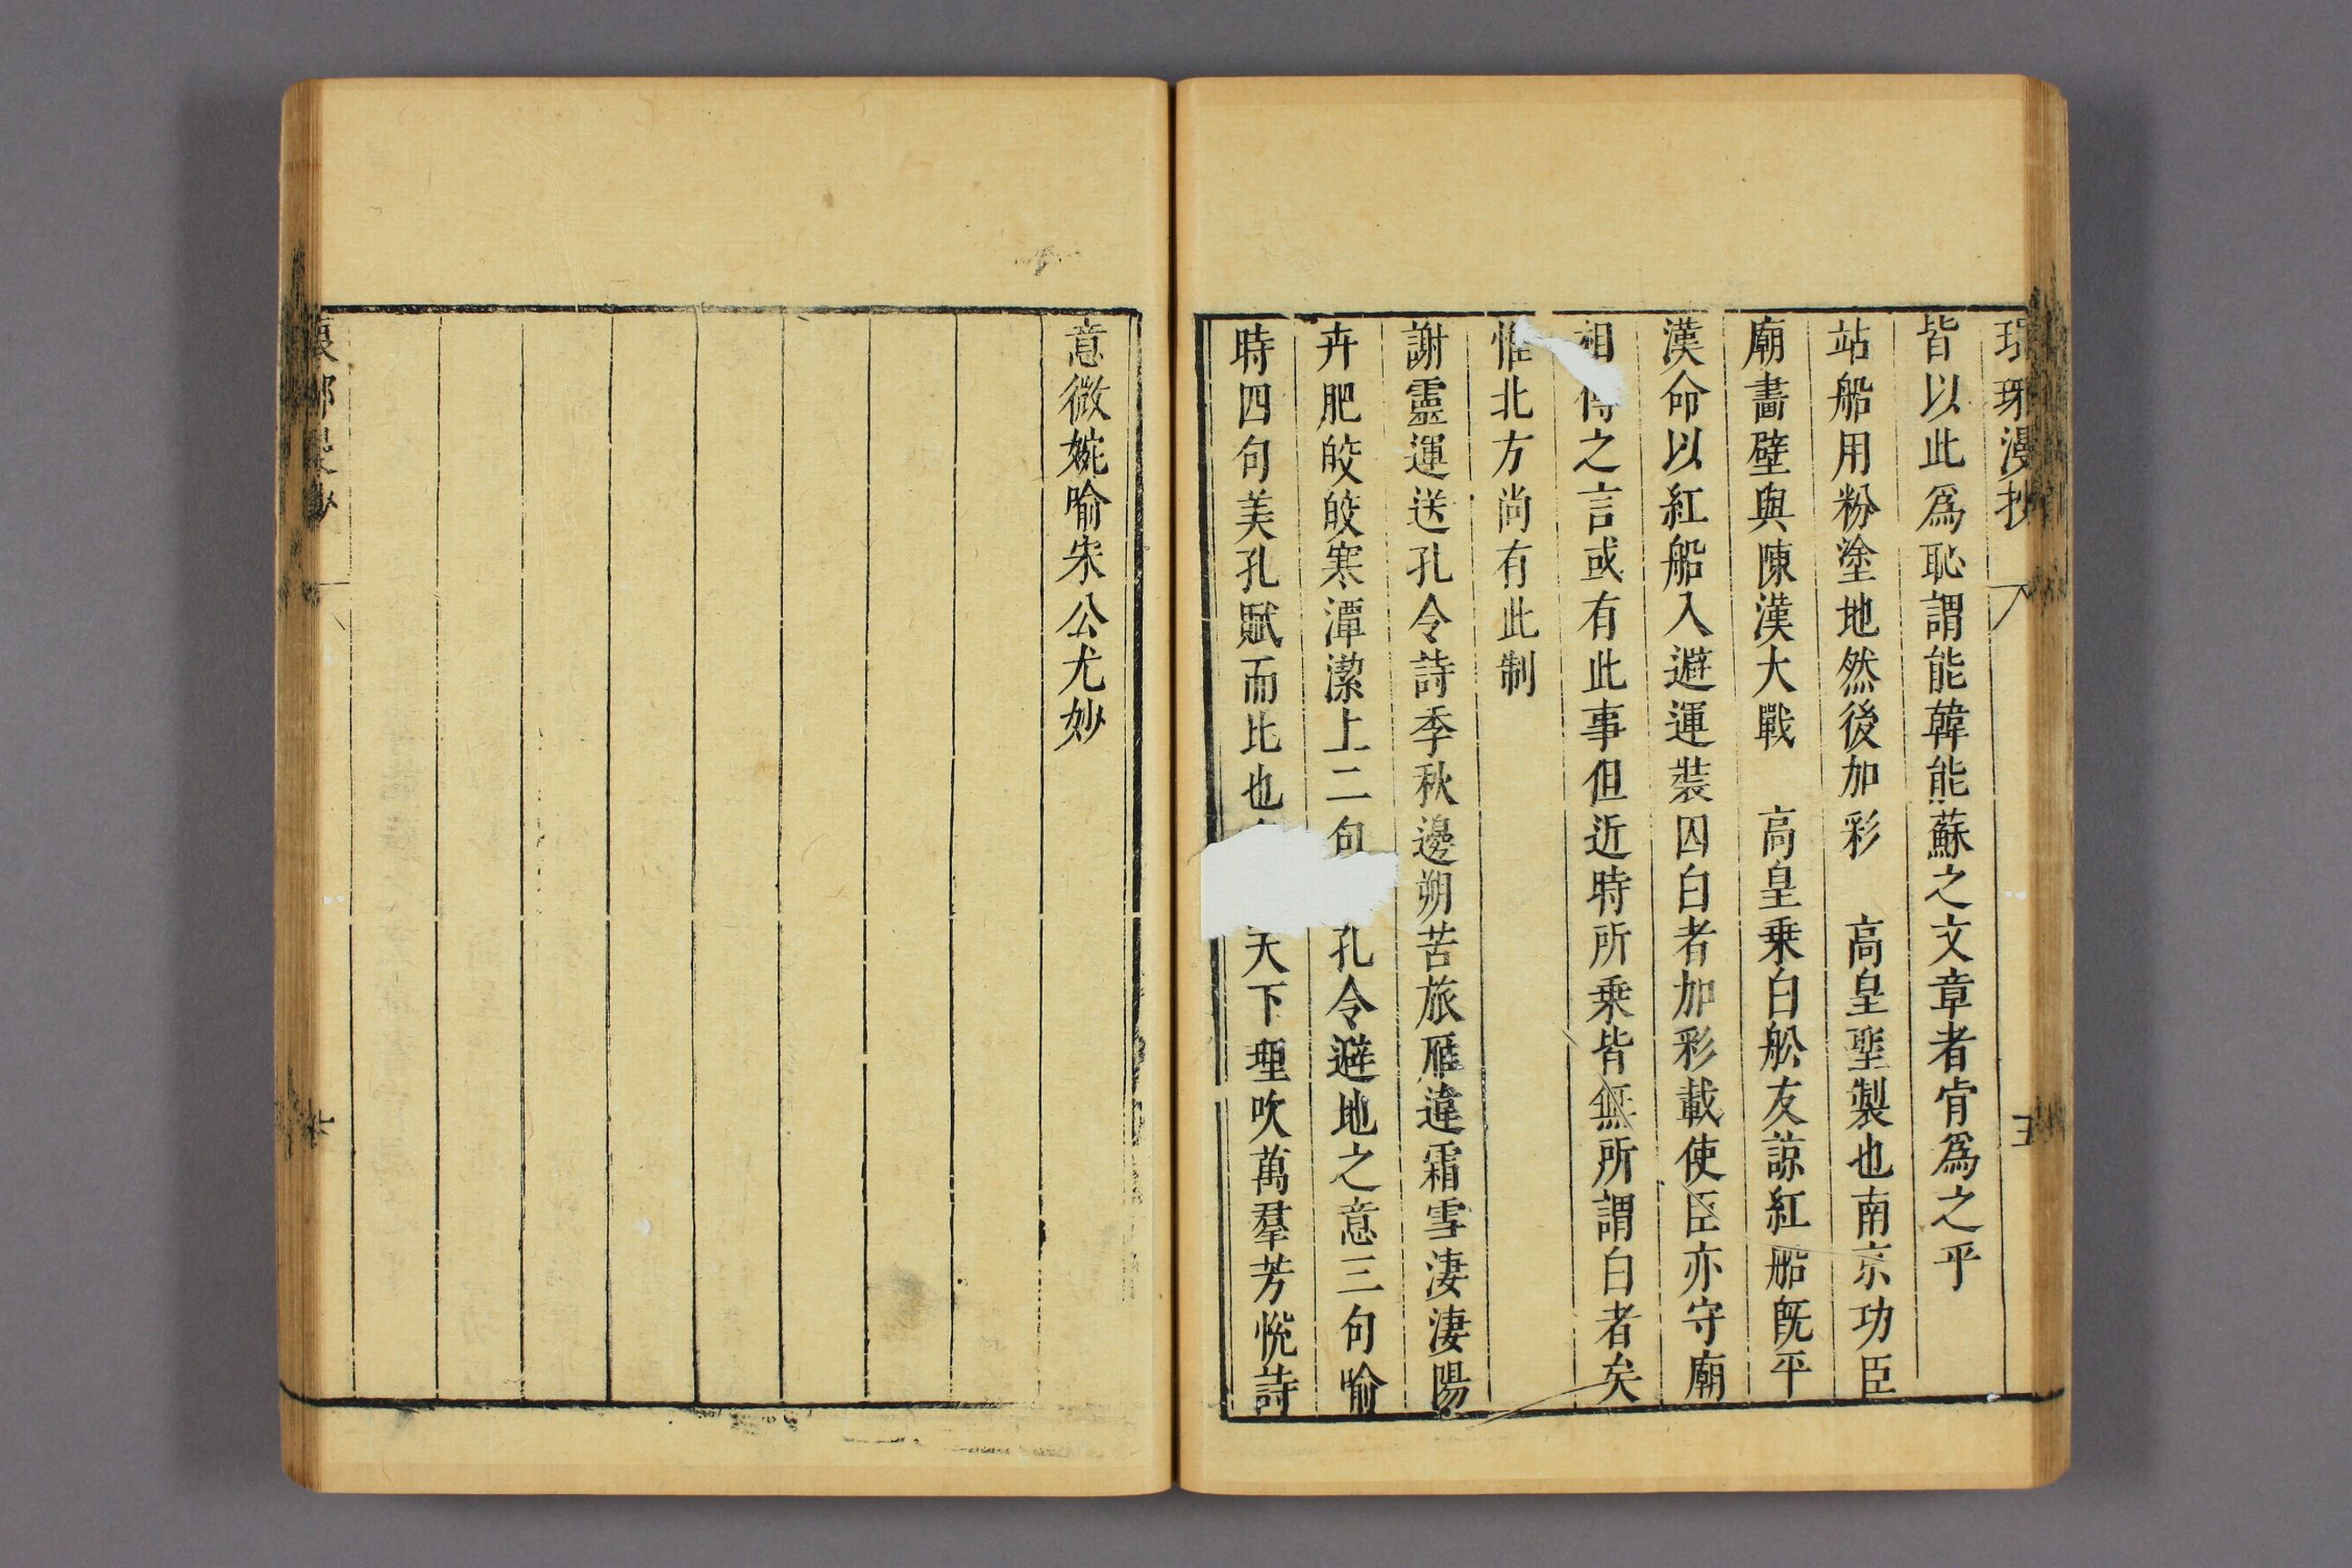 琅琊漫抄
皆以此爲恥謂能韓能蘇之文章者肯爲之乎
站船用粉塗地然後加彩　高皇聖製也南京功臣
廟畵壁與陳漢大戰　高皇乗白舩友諒紅船旣平
漢命以紅船入避運裝囚白者加彩載使臣亦守廟
相傳之言或有此事但近時所乗皆無所謂白者矣
惟北方尚有此制
謝靈運送孔令詩季秋邊朔苦旅雁違霜雪淒淒陽
卉肥皎皎寒潭潔上二句孔令避地之意三句喻
時四句美孔賦而比也天下理吹萬羣芳悅詩
意微婉喻宋公尤妙